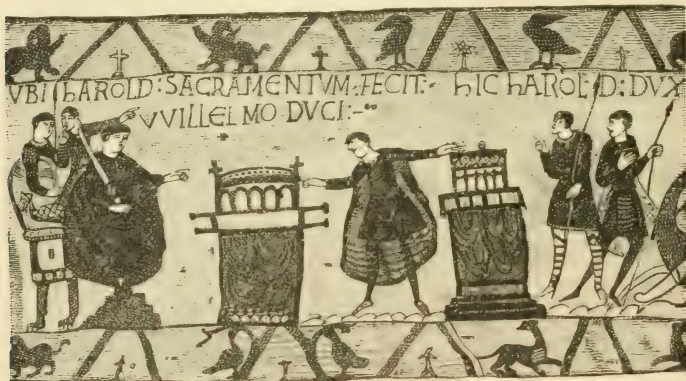 VBI hAROLD : SACRAMENTVM : FECIT :· hIC hAROLD : DVX
VVILLELMO DVCI :-